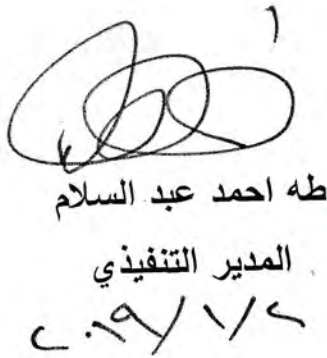 طه احمد عبد السلام
المدير التنفيذي
٢٠١٩/١/٢